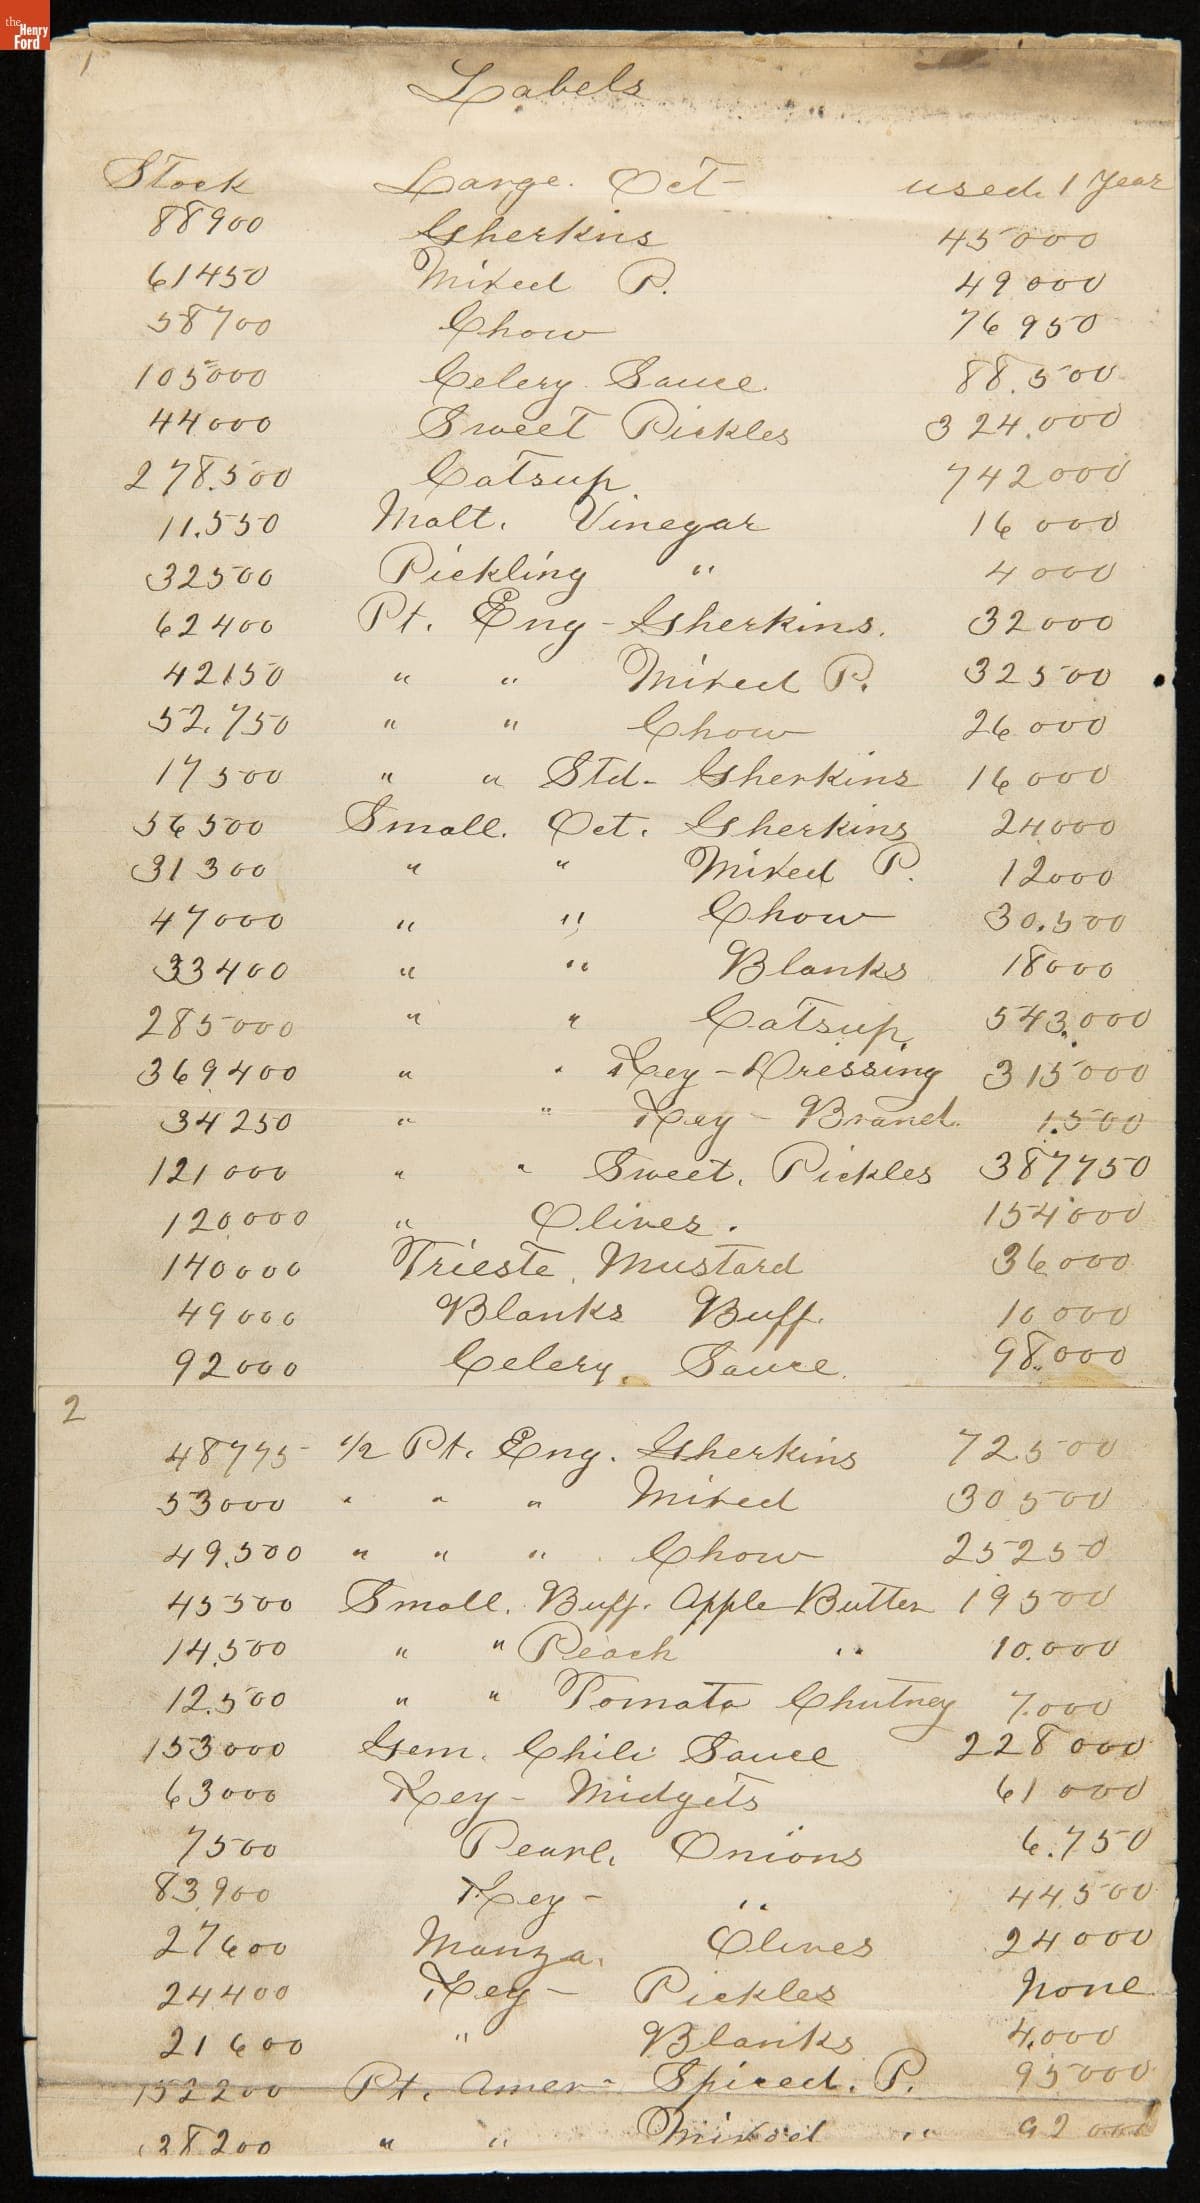 the Henry Ford
1
Labels
Stock Large. Oct- used. 1 Year
88900 Gherkins 45000
61450 Mixed P. 49000
58700 Chow 76950
105000 Celery Sauce. 88.500
44000 Sweet Pickles 324.000
278.500 Catsup 742000
11.550 Malt. Vinegar 16000
32500 Pickling " 4000
62400 Pt. Eng - Gherkins. 32000
42150 " " Mixed P. 32500
52.750 " " Chow 26000
17500 " " Std- Gherkins 16000
56500 Small. Oct. Gherkins 24000
31300 " " Mixed P. 12000
47000 " " Chow 30.500
33400 " " Blanks 18000
285000 " " Catsup 543.000
369400 " " Key - Dressing 315000
34250 " " Key - Brand. 1.500
121000 " " Sweet. Pickles 387750
120000 " Olives. 154000
140000 Trieste. Mustard 36000
49000 Blanks Buff. 10000
92000 Celery. Sauce. 98.000
2
48775 1/2 Pt. Eng. Gherkins 72500
53000 " " " Mixed 30500
49.500 " " " Chow 25250
45500 Small. Buff. Apple Butter 19500
14.500 " " Peach " 10.000
12.500 " " Tomato Chutney 7.000
153000 Gem. Chili Sauce 228000
63000 Key - Midgets 61000
7500 Pearl. Onions 6.750
83900 Key - " 44.500
27600 Manza. Olives 24000
24400 Key - Pickles None
21600 " Blanks 4.000
152200 Pt. Amer - Spiced. P. 95000
38200 " " Mixed " 92000